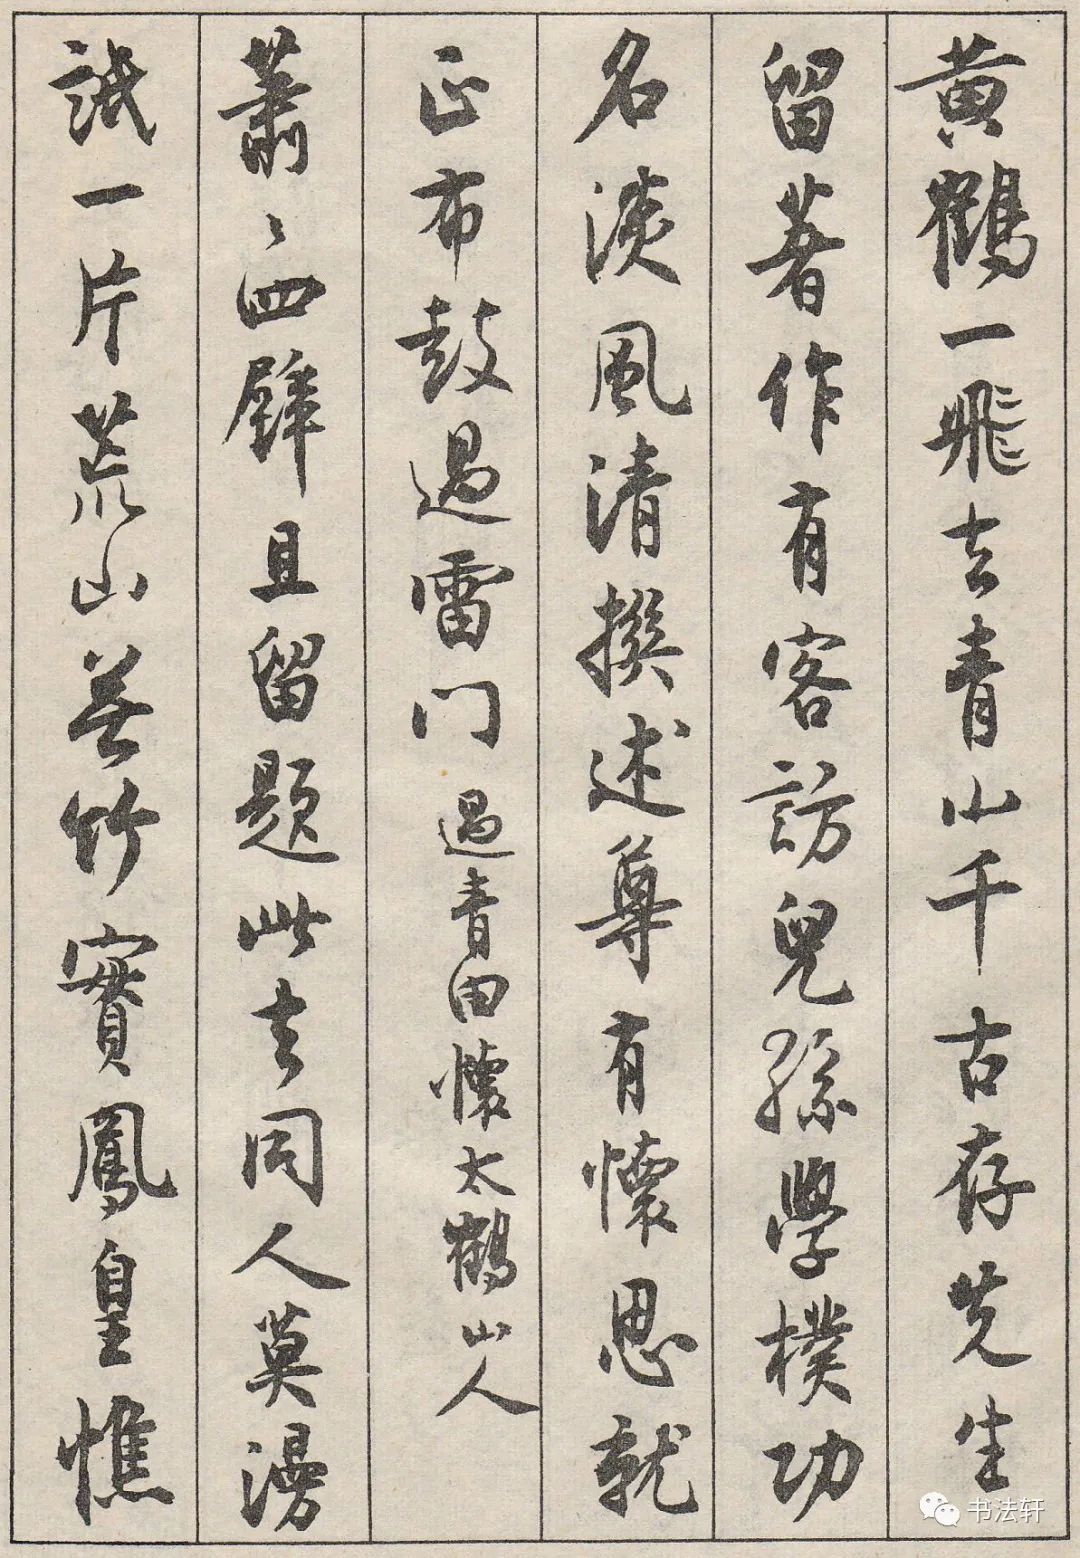 黄鶴一飛去青山千古存先生
留著作有客訪兒孫學樸功
名淡風清撰述尊有懷思就
正布鼓過雷门 過青田懷太鶴山人
蕭〻四壁且留題此去同人莫漫
詆一片荒山無竹實鳳皇憔
书法轩